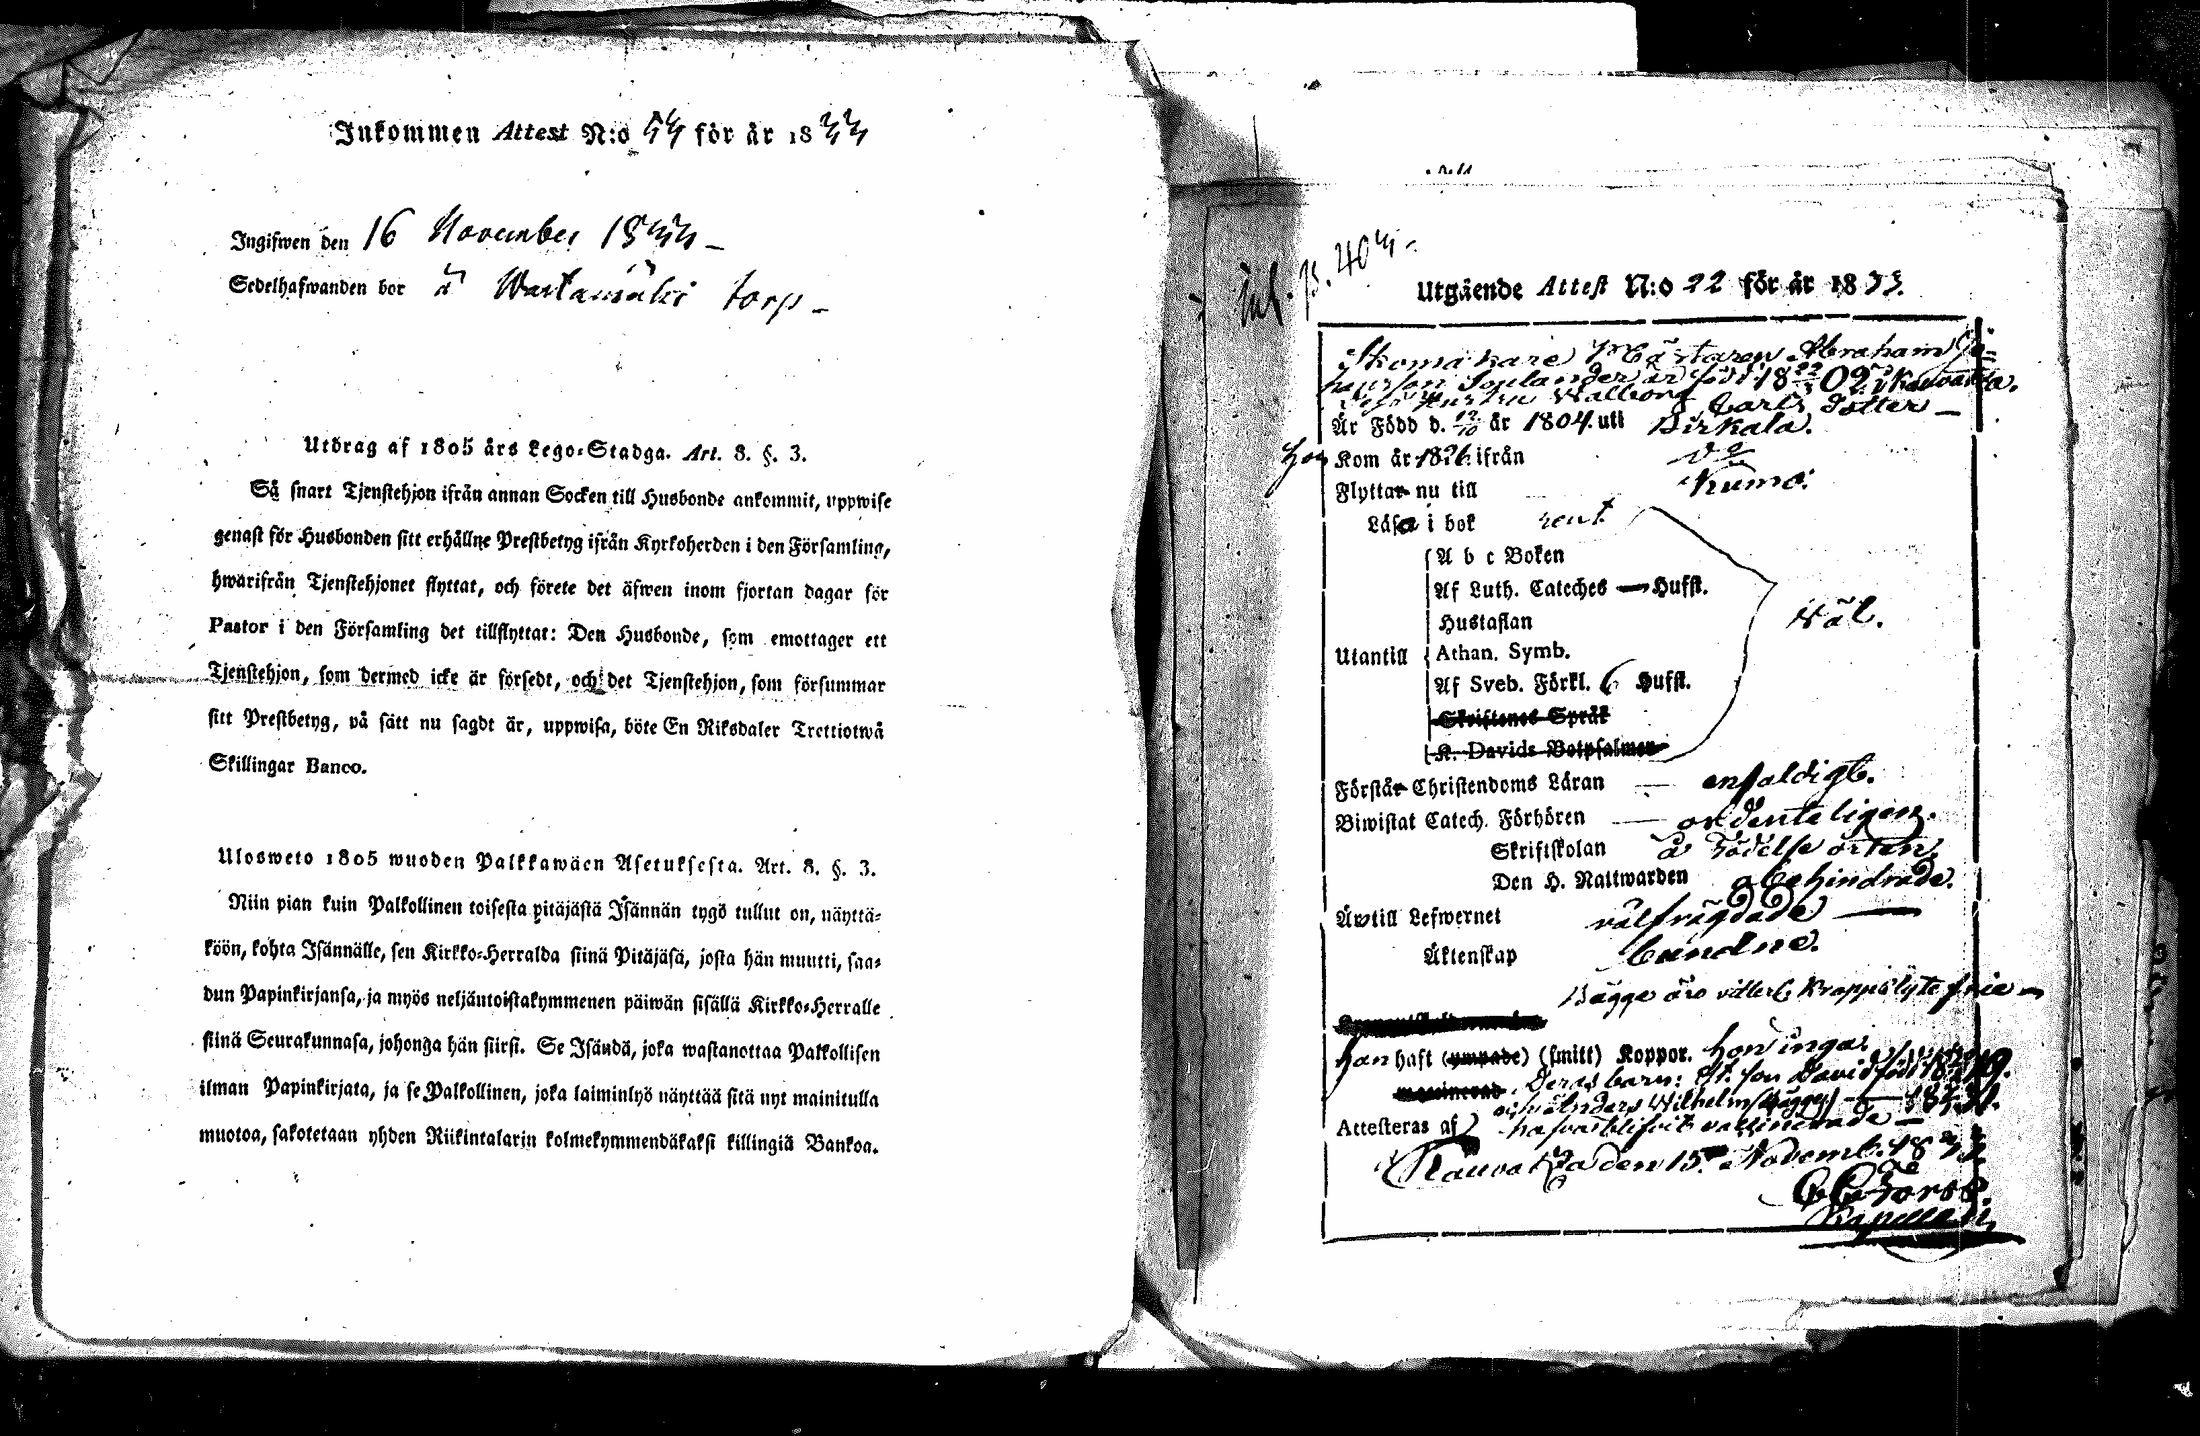 Inkommen Attest N:o 54 för år 1833
Ingifwen den 16 November 1833 –
Sedelhafwanden bor å torp –
Utdrag af 1805 års Lego-Stadga. Art. 8. §. 3.
Så snart Tjenstehjon ifrån annan Socken till Husbonde ankommit, uppwise
genast för Husbonden sitt erhållne Prestbetyg ifrån Kyrkoherden i den Församling,
hwarifrån Tjenstehjonet flyttat, och förete det äfwen inom fjortan dagar för
Pastor i den Församling det tillflyttat: Den Husbonde, som emottager ett
Tjenstehjon, som dermed icke är försedt, och det Tjenstehjon, som försummar
sitt Prestbetyg, på sätt nu sagdt är, uppwisa, böte En Riksdaler Trettiotwå
Skillingar Banco.
Ulosweto 1805 wuoden Palkkawäen Asetuksesta. Art. 8. §. 3.
Niin pian kuin Palkollinen toisesta pitäjästä Isännän tygö tullut on, näyttä-
köön, kohta Isännälle, sen Kirkko-Herralda siinä Pitäjäsä, josta hän muutti, saa-
dun Papinkirjansa, ja myös neljäntoistakymmenen päiwän sisällä Kirkko-Herralle
siinä Seurakunnasa, johonga hän siirsi. Se Isändä, joka wastanottaa Palkollisen
ilman Papinkirjata, ja se Palkollinen, joka laiminlyö näyttää sitä nyt mainitulla
muotoa, sakotetaan yhden Riikintalarin kolmekymmendäkaksi killingiä Bankoa.
Inf. p. 403.
Utgående Attest N:o 22 för år 1833.
Skomakare Mästaren Abraham Jo=
hansson är född 18 02 i Kauvatsa.
Hustru Walborg Carls Dotter –
Är Född d. 12/10 år 1804. uti Birkala.
Hon Kom år 1826 ifrån d:o
Flyttar nu till Kumo.
Läsa i bok rent
A b c Boken
Af Luth. Cateches — Hufst.
Hustaflan
Wäl.
Utantill Athan. Symb.
Af Sveb. Förkl. 6 Hufst.
Skriftenes Språk
K. Davids Botpsalmer
Förstår Christendoms Läran — enfaldigt.
Biwistat Catech. Förhören — ordenteligen.
Skriftskolan å Födelse orten.
Den H. Nattwarden obehindrade.
Äro till Lefwernet välfrägdade —
Äktenskap bundne.
Bägge äro vitterl. kroppslyte frie –
han haft (ympade) (smitt) Koppor. hon inga.
Deras barn: St. Son David född
och Anders Wilhelm
Attesteras af vaccinerade –
Kauvatsa den 15 Novemb. 1833
Forss.
Kapellan